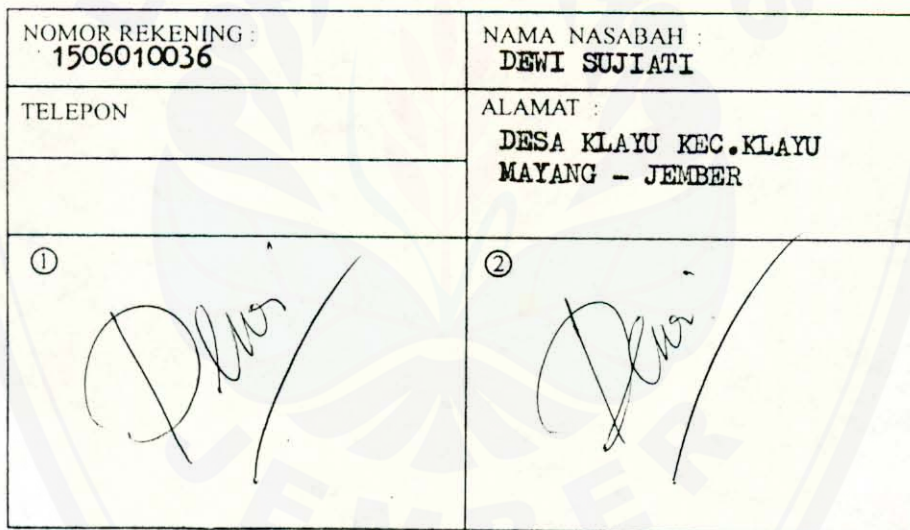 NOMOR REKENING :
1506010036
NAMA NASABAH :
DEWI SUJIATI
TELEPON
ALAMAT :
DESA KLAYU KEC.KLAYU
MAYANG - JEMBER
①
Dewi
②
Dewi
JEMBER